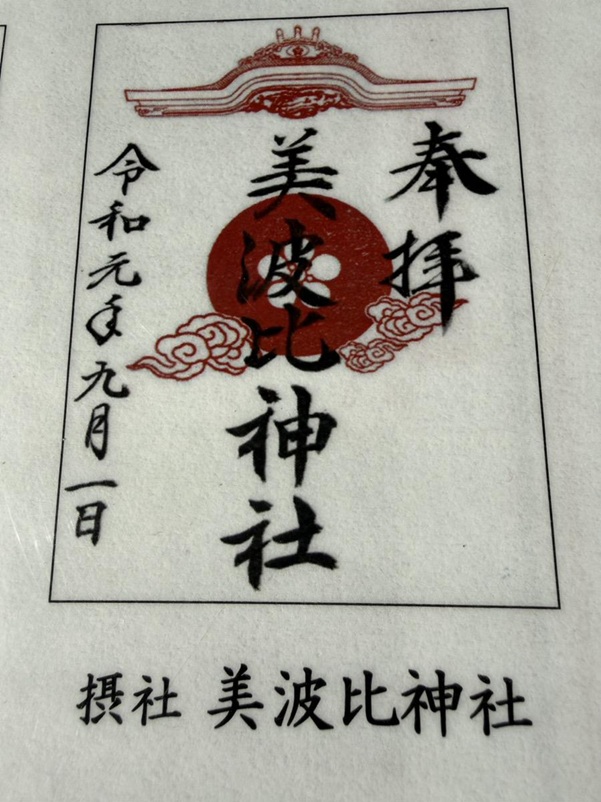 奉拝
美波比神社
令和元年九月一日
摂社 美波比神社